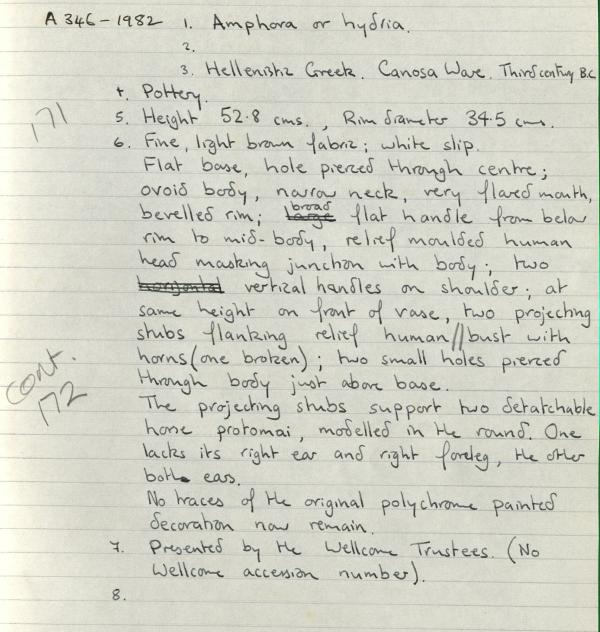 A 346-1982 1. Amphora or hydria.
2.
3. Hellenistic Greek. Canosa Ware. Third century B.C
4. Pottery.
171
5. Height 52.8 cms., Rim diameter 34.5 cms.
6. Fine, light brown fabric; white slip.
Flat base, hole pierced through centre;
ovoid body, narrow neck, very flared mouth,
bevelled rim; large broad flat handle from below
rim to mid-body, relief moulded human
head masking junction with body; two
horizontal vertical handles on shoulder; at
same height on front of vase, two projecting
stubs flanking relief human//bust with
horns (one broken); two small holes pierced
through body just above base.
cont. 172
The projecting stubs support two detatchable
horse protomai, modelled in the round. One
lacks its right ear and right foreleg, the other
both ears.
No traces of the original polychrome painted
decoration now remain.
7. Presented by the Wellcome Trustees. (No
Wellcome accession number).
8.